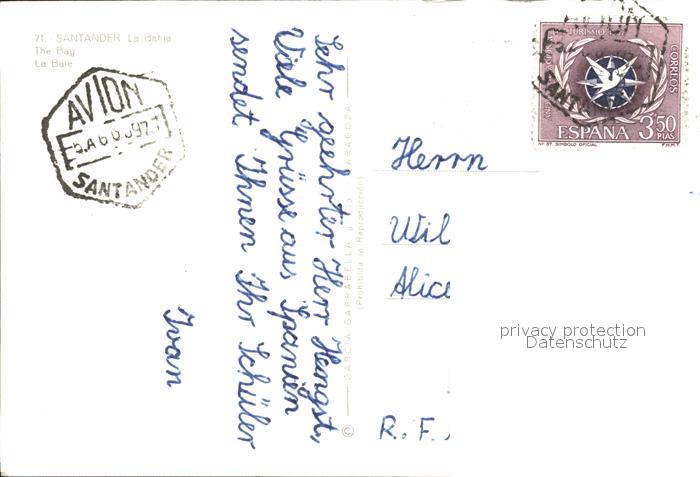 71. - SANTANDER La Bahia
The Bay
La Baie
AVION
SANTANDER
Sehr geehrter Herr Hengst,
Viele Grüsse aus Spanien
sendet Ihnen Ihr Schüler
Ivan
© GARCIA GARRABELLA ZARAGOZA
(Prohibida la Reproducción)
TURISMO
CORREOS
ESPAÑA 3'50 PTAS
Nº 87. SIMBOLO OFICIAL
F.N.M.T
SANT
Herrn
Wil
Alice
R. F.
privacy protection
Datenschutz